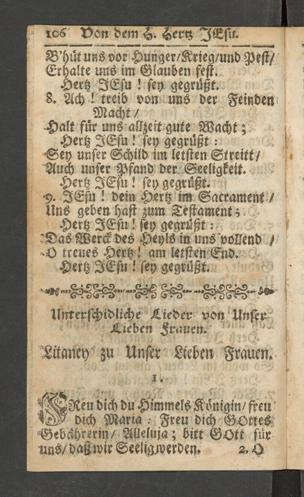 106 Von dem H. Hertz JEsu.
B'hüt uns vor Hunger/Krieg/und Pest/
Erhalte uns im Glauben fest.
Hertz JEsu! sey gegrüßt.
8. Ach! treib von uns der Feinden
Macht/
Halt für uns allzeit gute Wacht;
Hertz JEsu! sey gegrüßt:
Sey unser Schild im letsten Streitt/
Auch unser Pfand der Seeligkeit.
Hertz JEsu! sey gegrüßt.
9. JEsu! dein Hertz im Sacrament/
Uns geben hast zum Testament;
Hertz JEsu! sey gegrüßt:
Das Werck des Heyls in uns vollend/
O treues Hertz! am letsten End.
Hertz JEsu! sey gegrüßt.
Unterschidliche Lieder von Unser
Lieben Frauen.
Litaney zu Unser Lieben Frauen.
1.
FReu dich du Himmels Königin/freu
dich Maria: Freu dich GOttes
Gebährerin/ Alleluja; bitt GOtt für
uns/daß wir Seelig werden. 2. O